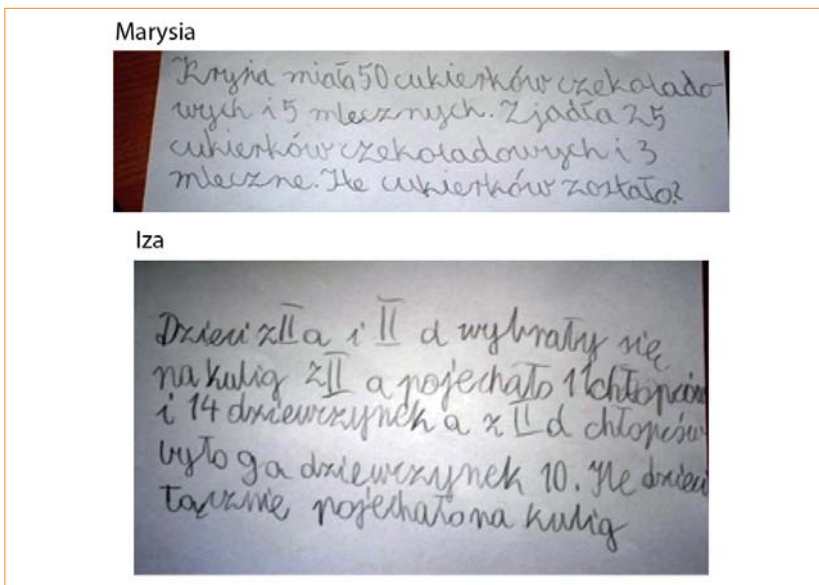 Marysia
Krysia miała 50 cukierków czekolado-
wych i 5 mlecznych. Zjadła 25
cukierków czekoladowych i 3
mleczne. Ile cukierków zostało?
Iza
Dzieci z II a i II d wybrały się
na kulig z II a pojechało 11 chłopców
i 14 dziewczynek a z II d chłopców
było 9 a dziewczynek 10. Ile dzieci
łącznie pojechało na kulig